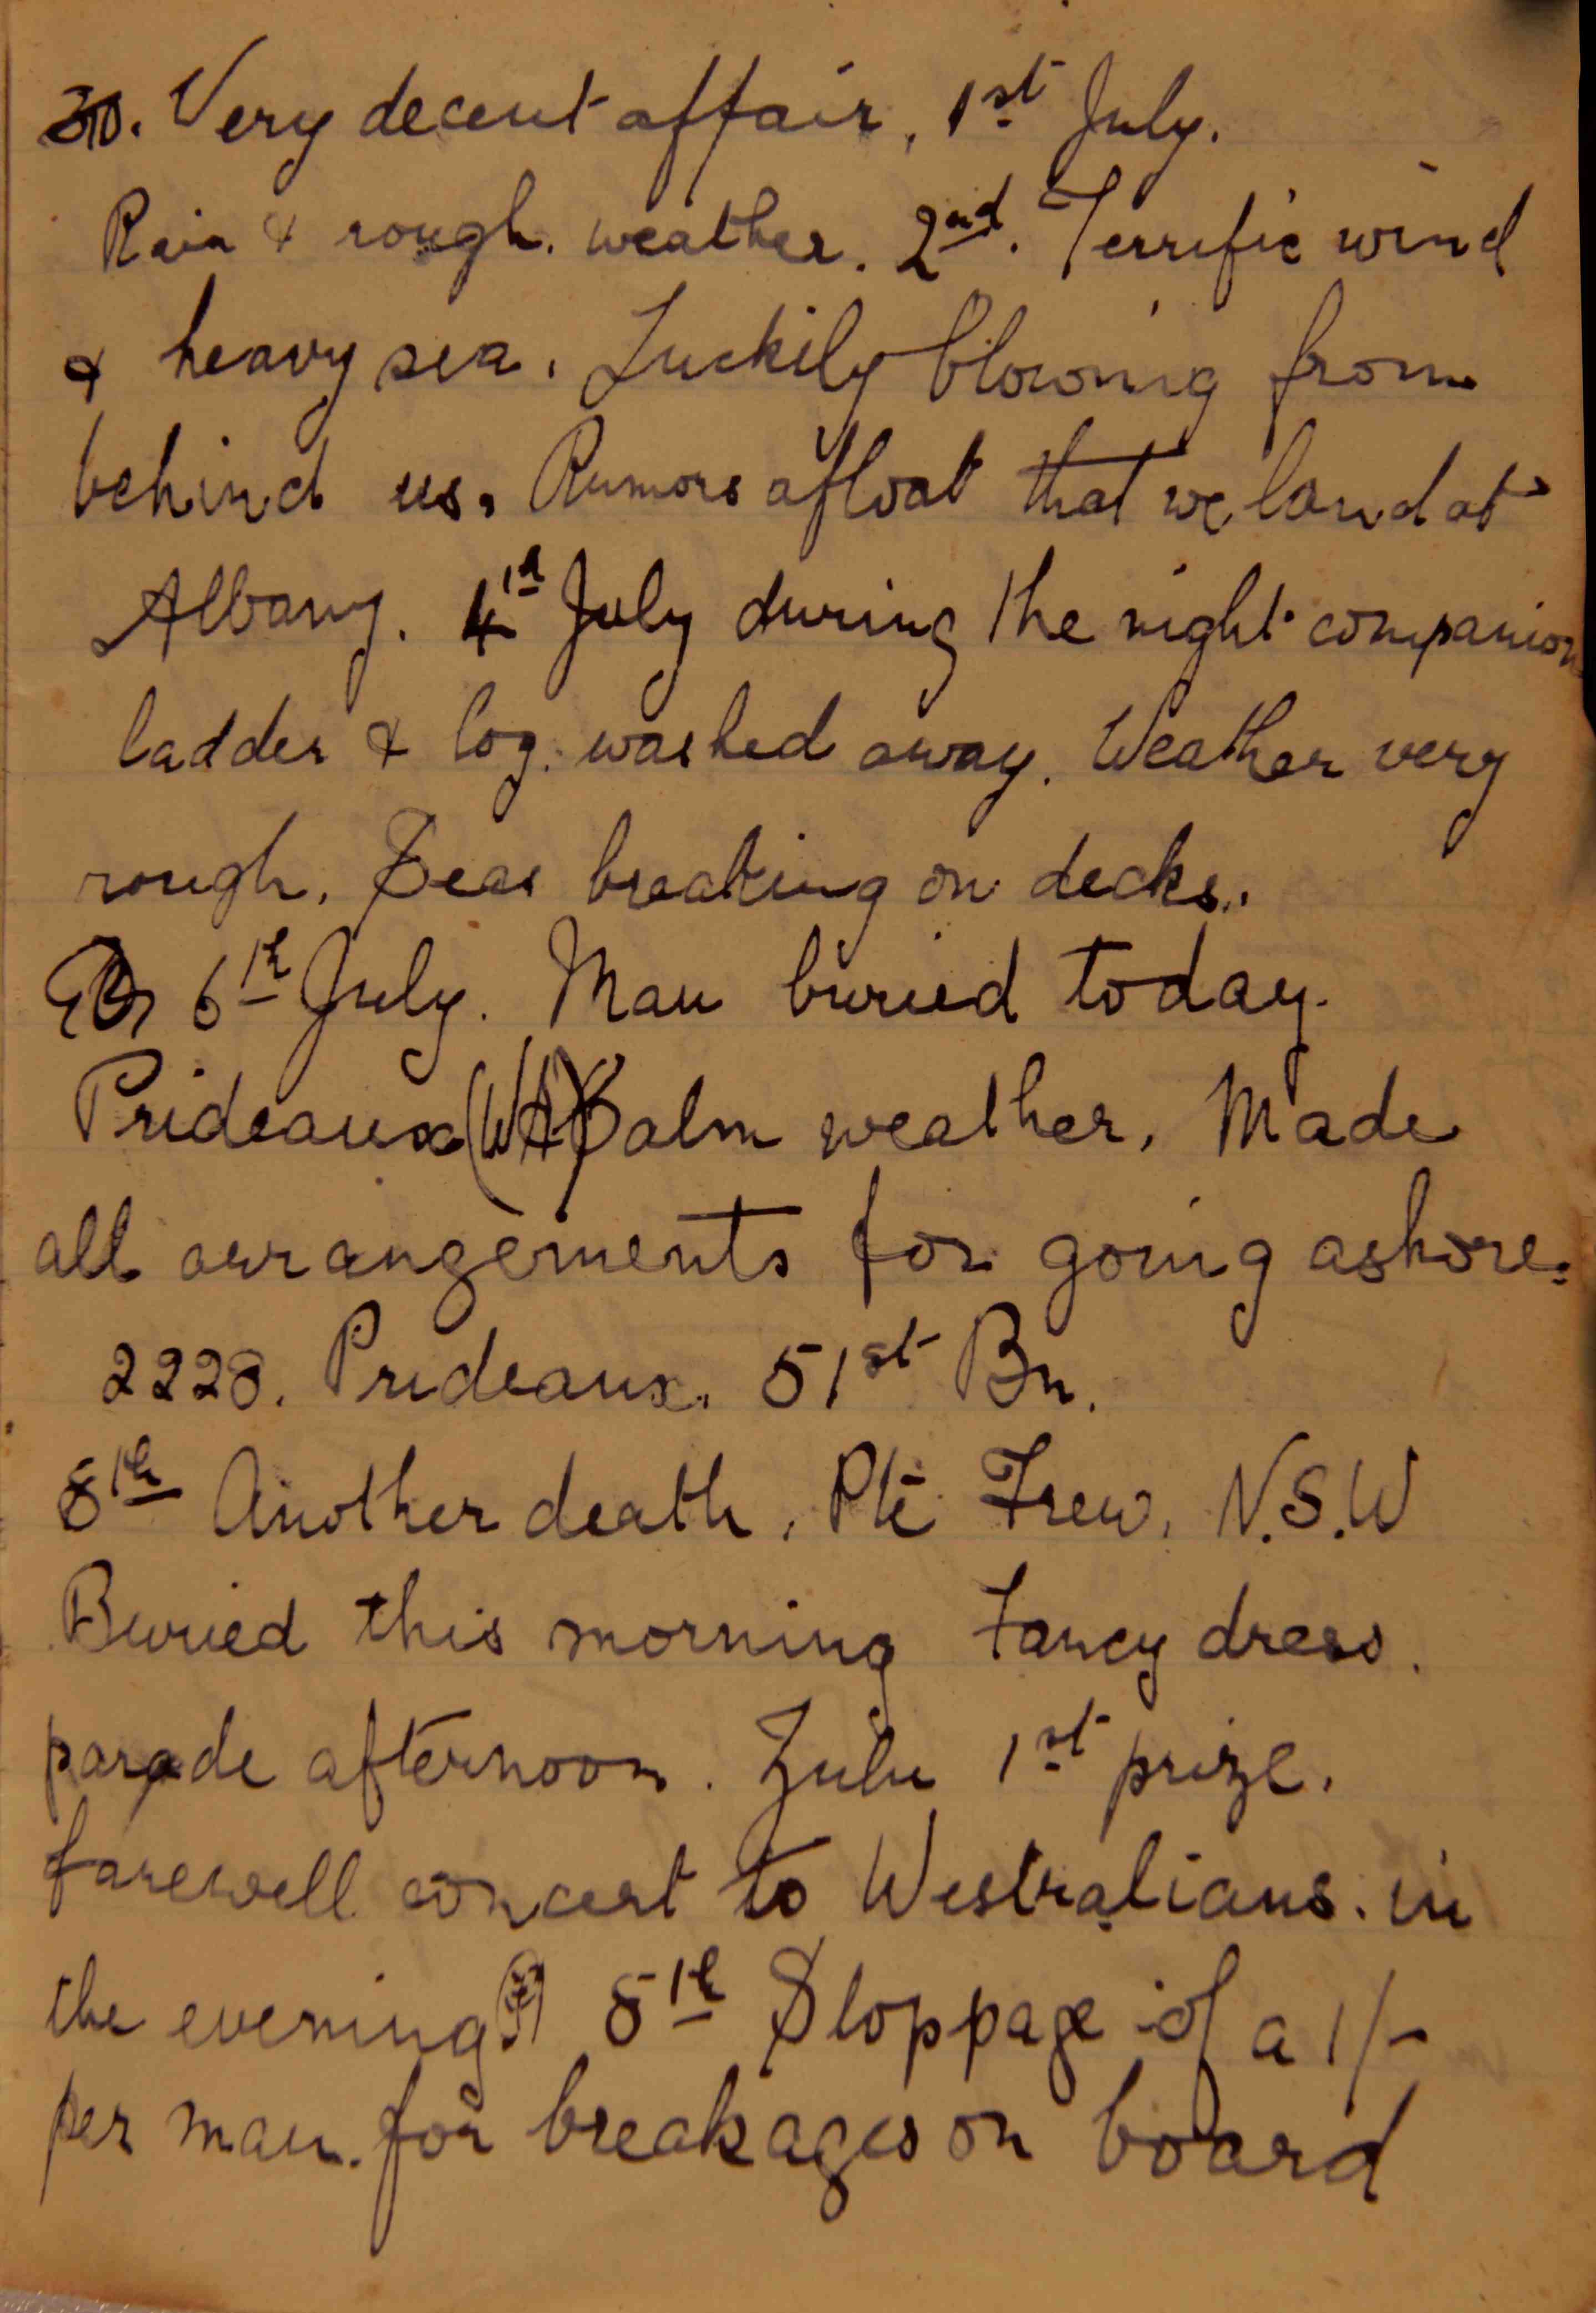 30. Very decent affair. 1st July.
Rain & rough. weather. 2nd. Terrific wind
& heavy sea. Luckily blowing from
behind us. Rumors afloat that we land at
Albany. 4th July during the night companion
ladder & log. washed away. Weather very
rough. Seas breaking on decks.
6th July. Man buried today.
Prideaux (WA) Calm weather. Made
all arrangements for going ashore.
2228. Prideaux. 51st Bn.
8th Another death. Pte Frew. N.S.W
Buried this morning Fancy dress.
parade afternoon. Zulu 1st prize.
farewell concert to Westralians. in
the evening 8th Stoppage of a 1/-
per man. for breakages on board